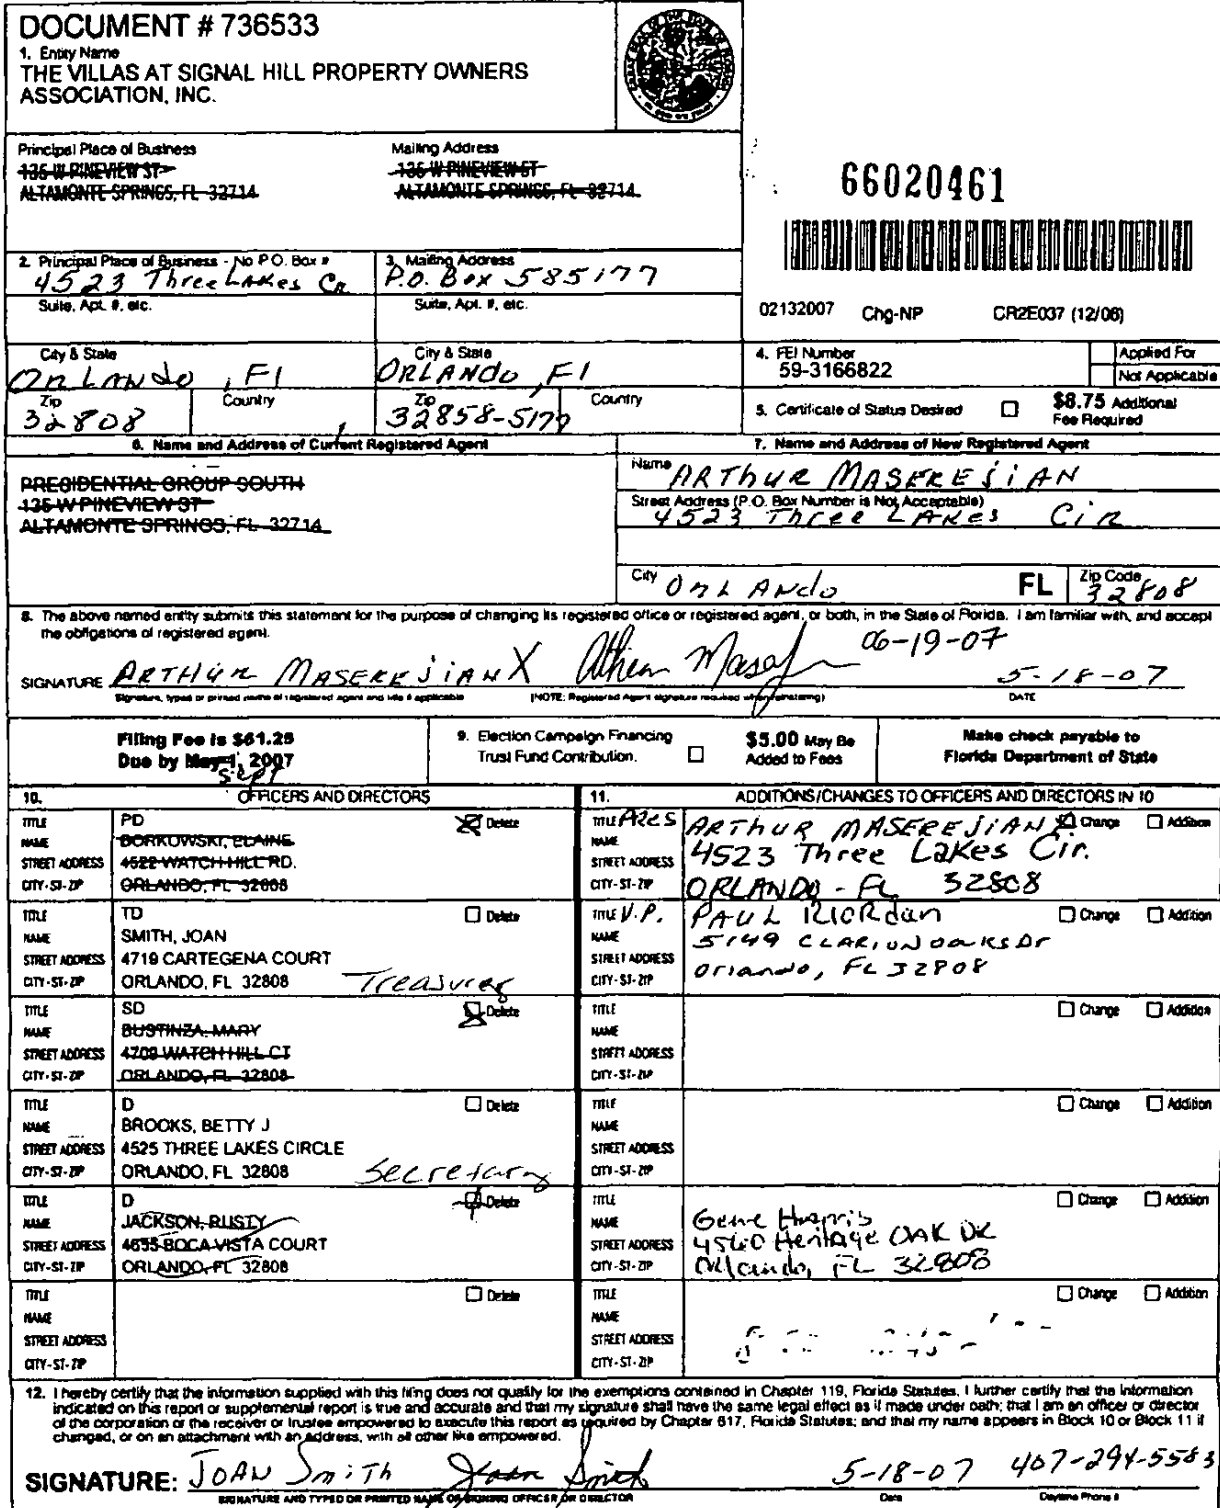 DOCUMENT # 736533
1. Entity Name
THE VILLAS AT SIGNAL HILL PROPERTY OWNERS
ASSOCIATION, INC.
Principal Place of Business
135 W PINEVIEW ST
ALTAMONTE SPRINGS, FL 32714
Mailing Address
135 W PINEVIEW ST
ALTAMONTE SPRINGS, FL 32714
66020461
02132007 Chg-NP CR2E037 (12/06)
2. Principal Place of Business - No P.O. Box #
4523 Three Lakes Cr
Suite, Apt. #, etc.
City & State
Orlando, Fl
Zip
32808
Country
3. Mailing Address
P.O. Box 585177
Suite, Apt. #, etc.
City & State
Orlando, Fl
Zip
32858-5177
Country
4. FEI Number
59-3166822
Applied For
Not Applicable
5. Certificate of Status Desired
$8.75 Additional
Fee Required
6. Name and Address of Current Registered Agent
PRESIDENTIAL GROUP SOUTH
135 W PINEVIEW ST
ALTAMONTE SPRINGS, FL 32714
7. Name and Address of New Registered Agent
Name ARTHUR MASEREJIAN
Street Address (P.O. Box Number is Not Acceptable)
4523 Three Lakes Cir
City Orlando FL Zip Code 32808
8. The above named entity submits this statement for the purpose of changing its registered office or registered agent, or both, in the State of Florida. I am familiar with, and accept
the obligations of registered agent.
06-19-07
SIGNATURE ARTHUR MASEREJIAN X 5-18-07
Signature, typed or printed name of registered agent and title if applicable (NOTE: Registered Agent signature required when reinstating) DATE
Filing Fee is $61.25
Due by May 1, 2007
Sept
9. Election Campaign Financing
Trust Fund Contribution.
$5.00 May Be
Added to Fees
Make check payable to
Florida Department of State
10. OFFICERS AND DIRECTORS
11. ADDITIONS/CHANGES TO OFFICERS AND DIRECTORS IN 10
TITLE PD Delete
NAME BORKOWSKI, ELAINE
STREET ADDRESS 4522 WATCH HILL RD.
CITY-ST-ZIP ORLANDO, FL 32808
TITLE Pres ARTHUR MASEREJIAN Change Addition
NAME
STREET ADDRESS 4523 Three Lakes Cir.
CITY-ST-ZIP ORLANDO - FL 32808
TITLE TD Delete
NAME SMITH, JOAN
STREET ADDRESS 4719 CARTEGENA COURT
CITY-ST-ZIP ORLANDO, FL 32808 Treasurer
TITLE V.P. PAUL RIORdan Change Addition
NAME
STREET ADDRESS 5149 CLARION OAKS Dr
CITY-ST-ZIP Orlando, FL 32808
TITLE SD Delete
NAME BUSTINZA, MARY
STREET ADDRESS 4709 WATCH HILL CT
CITY-ST-ZIP ORLANDO, FL 32808
TITLE Change Addition
NAME
STREET ADDRESS
CITY-ST-ZIP
TITLE D Delete
NAME BROOKS, BETTY J
STREET ADDRESS 4525 THREE LAKES CIRCLE
CITY-ST-ZIP ORLANDO, FL 32808 Secretary
TITLE Change Addition
NAME
STREET ADDRESS
CITY-ST-ZIP
TITLE D Delete
NAME JACKSON, RUSTY
STREET ADDRESS 4655 BOCA VISTA COURT
CITY-ST-ZIP ORLANDO, FL 32808
TITLE Change Addition
NAME Gene Harris
STREET ADDRESS 4560 Heritage OAK DR
CITY-ST-ZIP Orlando, FL 32808
TITLE Delete
NAME
STREET ADDRESS
CITY-ST-ZIP
TITLE Change Addition
NAME
STREET ADDRESS
CITY-ST-ZIP
12. I hereby certify that the information supplied with this filing does not qualify for the exemptions contained in Chapter 119, Florida Statutes. I further certify that the information
indicated on this report or supplemental report is true and accurate and that my signature shall have the same legal effect as if made under oath; that I am an officer or director
of the corporation or the receiver or trustee empowered to execute this report as required by Chapter 617, Florida Statutes; and that my name appears in Block 10 or Block 11 if
changed, or on an attachment with an address, with all other like empowered.
SIGNATURE: JOAN Smith Joan Smith 5-18-07 407-294-5583
SIGNATURE AND TYPED OR PRINTED NAME OF SIGNING OFFICER OR DIRECTOR Date Daytime Phone #